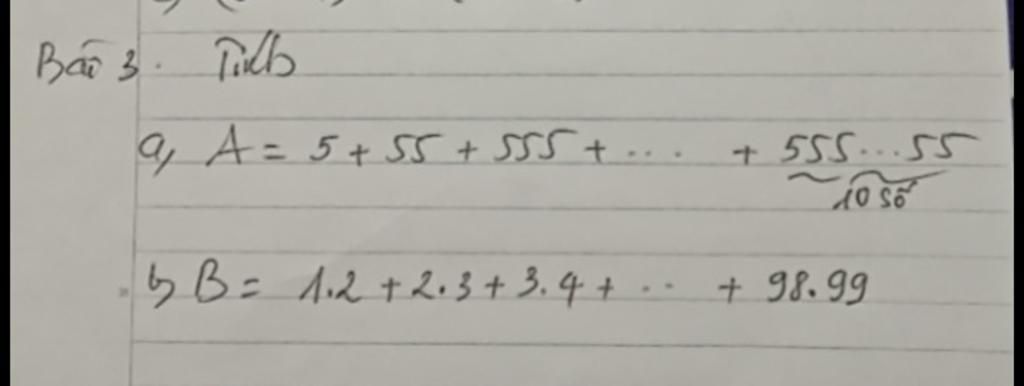 Bài 3. Tính
a, A = 5 + 55 + 555 + .... + 555...55
10 số
b, B = 1.2 + 2.3 + 3.4 + ... + 98.99